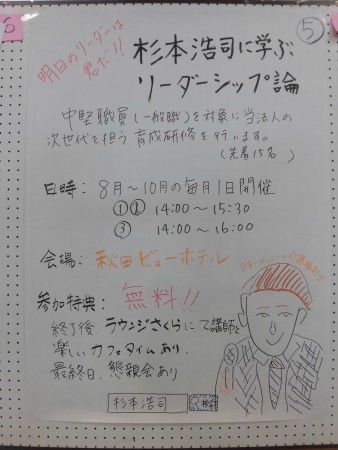 ⑤
明日のリーダーは
君だ!!
杉本浩司に学ぶ
リーダーシップ論
中堅職員(一般職)を対象に当法人の
次世代を担う育成研修を行います。
(先着15名)
日時: 8月〜10月の毎月1日開催
①② 14:00〜15:30
③ 14:00〜16:00
会場: 秋田ビューホテル
参加特典: 無料!!
終了後 ラウンジさくらにて講師と
楽しいカフェタイムあり
最終日、懇親会あり
杉本浩司 検索